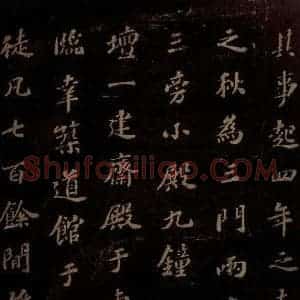 其事起四年之
之秋為三門兩
三旁小殿九鐘
壇一建齋殿于
臨幸築道館于
徒凡七百餘間
Shufaziliao.com